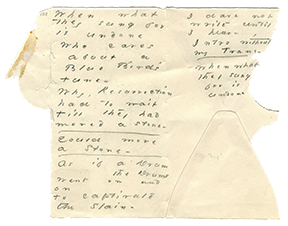 When what
they sung for
is undone
Who cares
about a
Blue Bird's
Tune -
Why, Resurrection
had to wait
till they had
moved a stone -
Could move
a stone -
As if a Drum
the Drums
went on and
on
to captivate
the slain -
I dare not
write until
I hear -
Intro without
my Trans -
When what
they sung
for is
undone